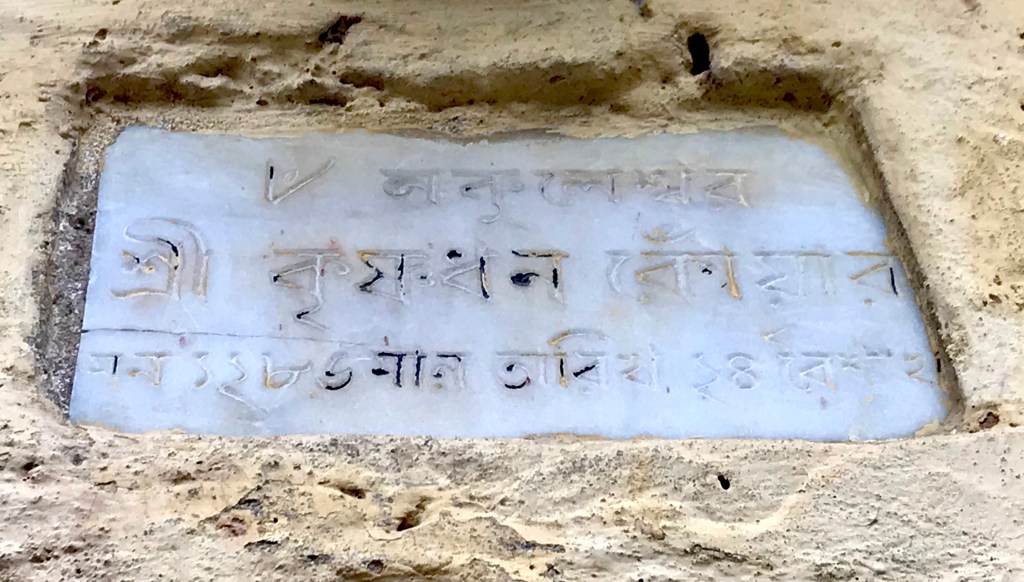 ৺ নকুলেশ্বর
শ্রী কৃষ্ণধন কোঁয়ার
সন ১২৮৬ সাল তারিখ ২৪ বৈশাখ